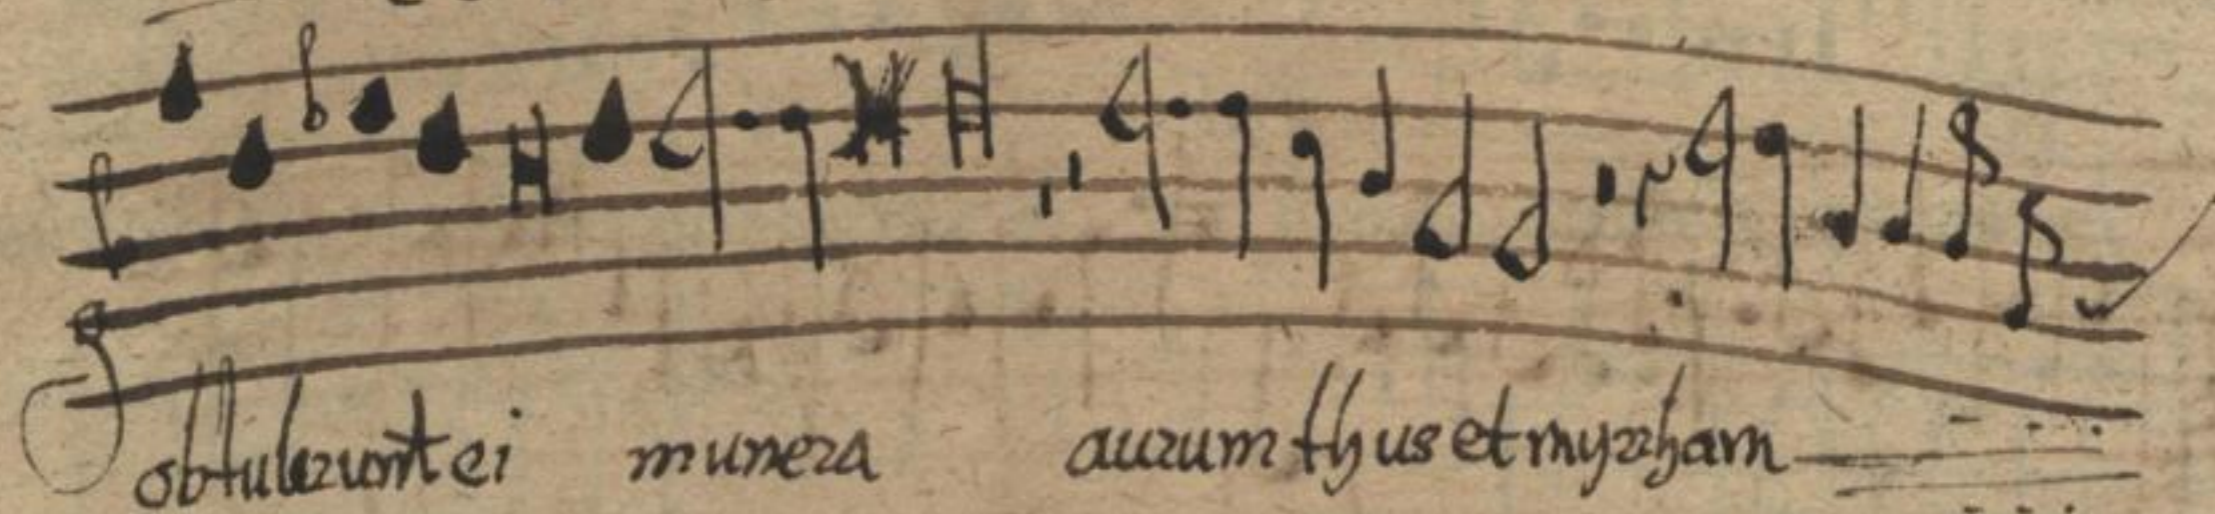 obtulerunt ei munera aurum thus et myrrham